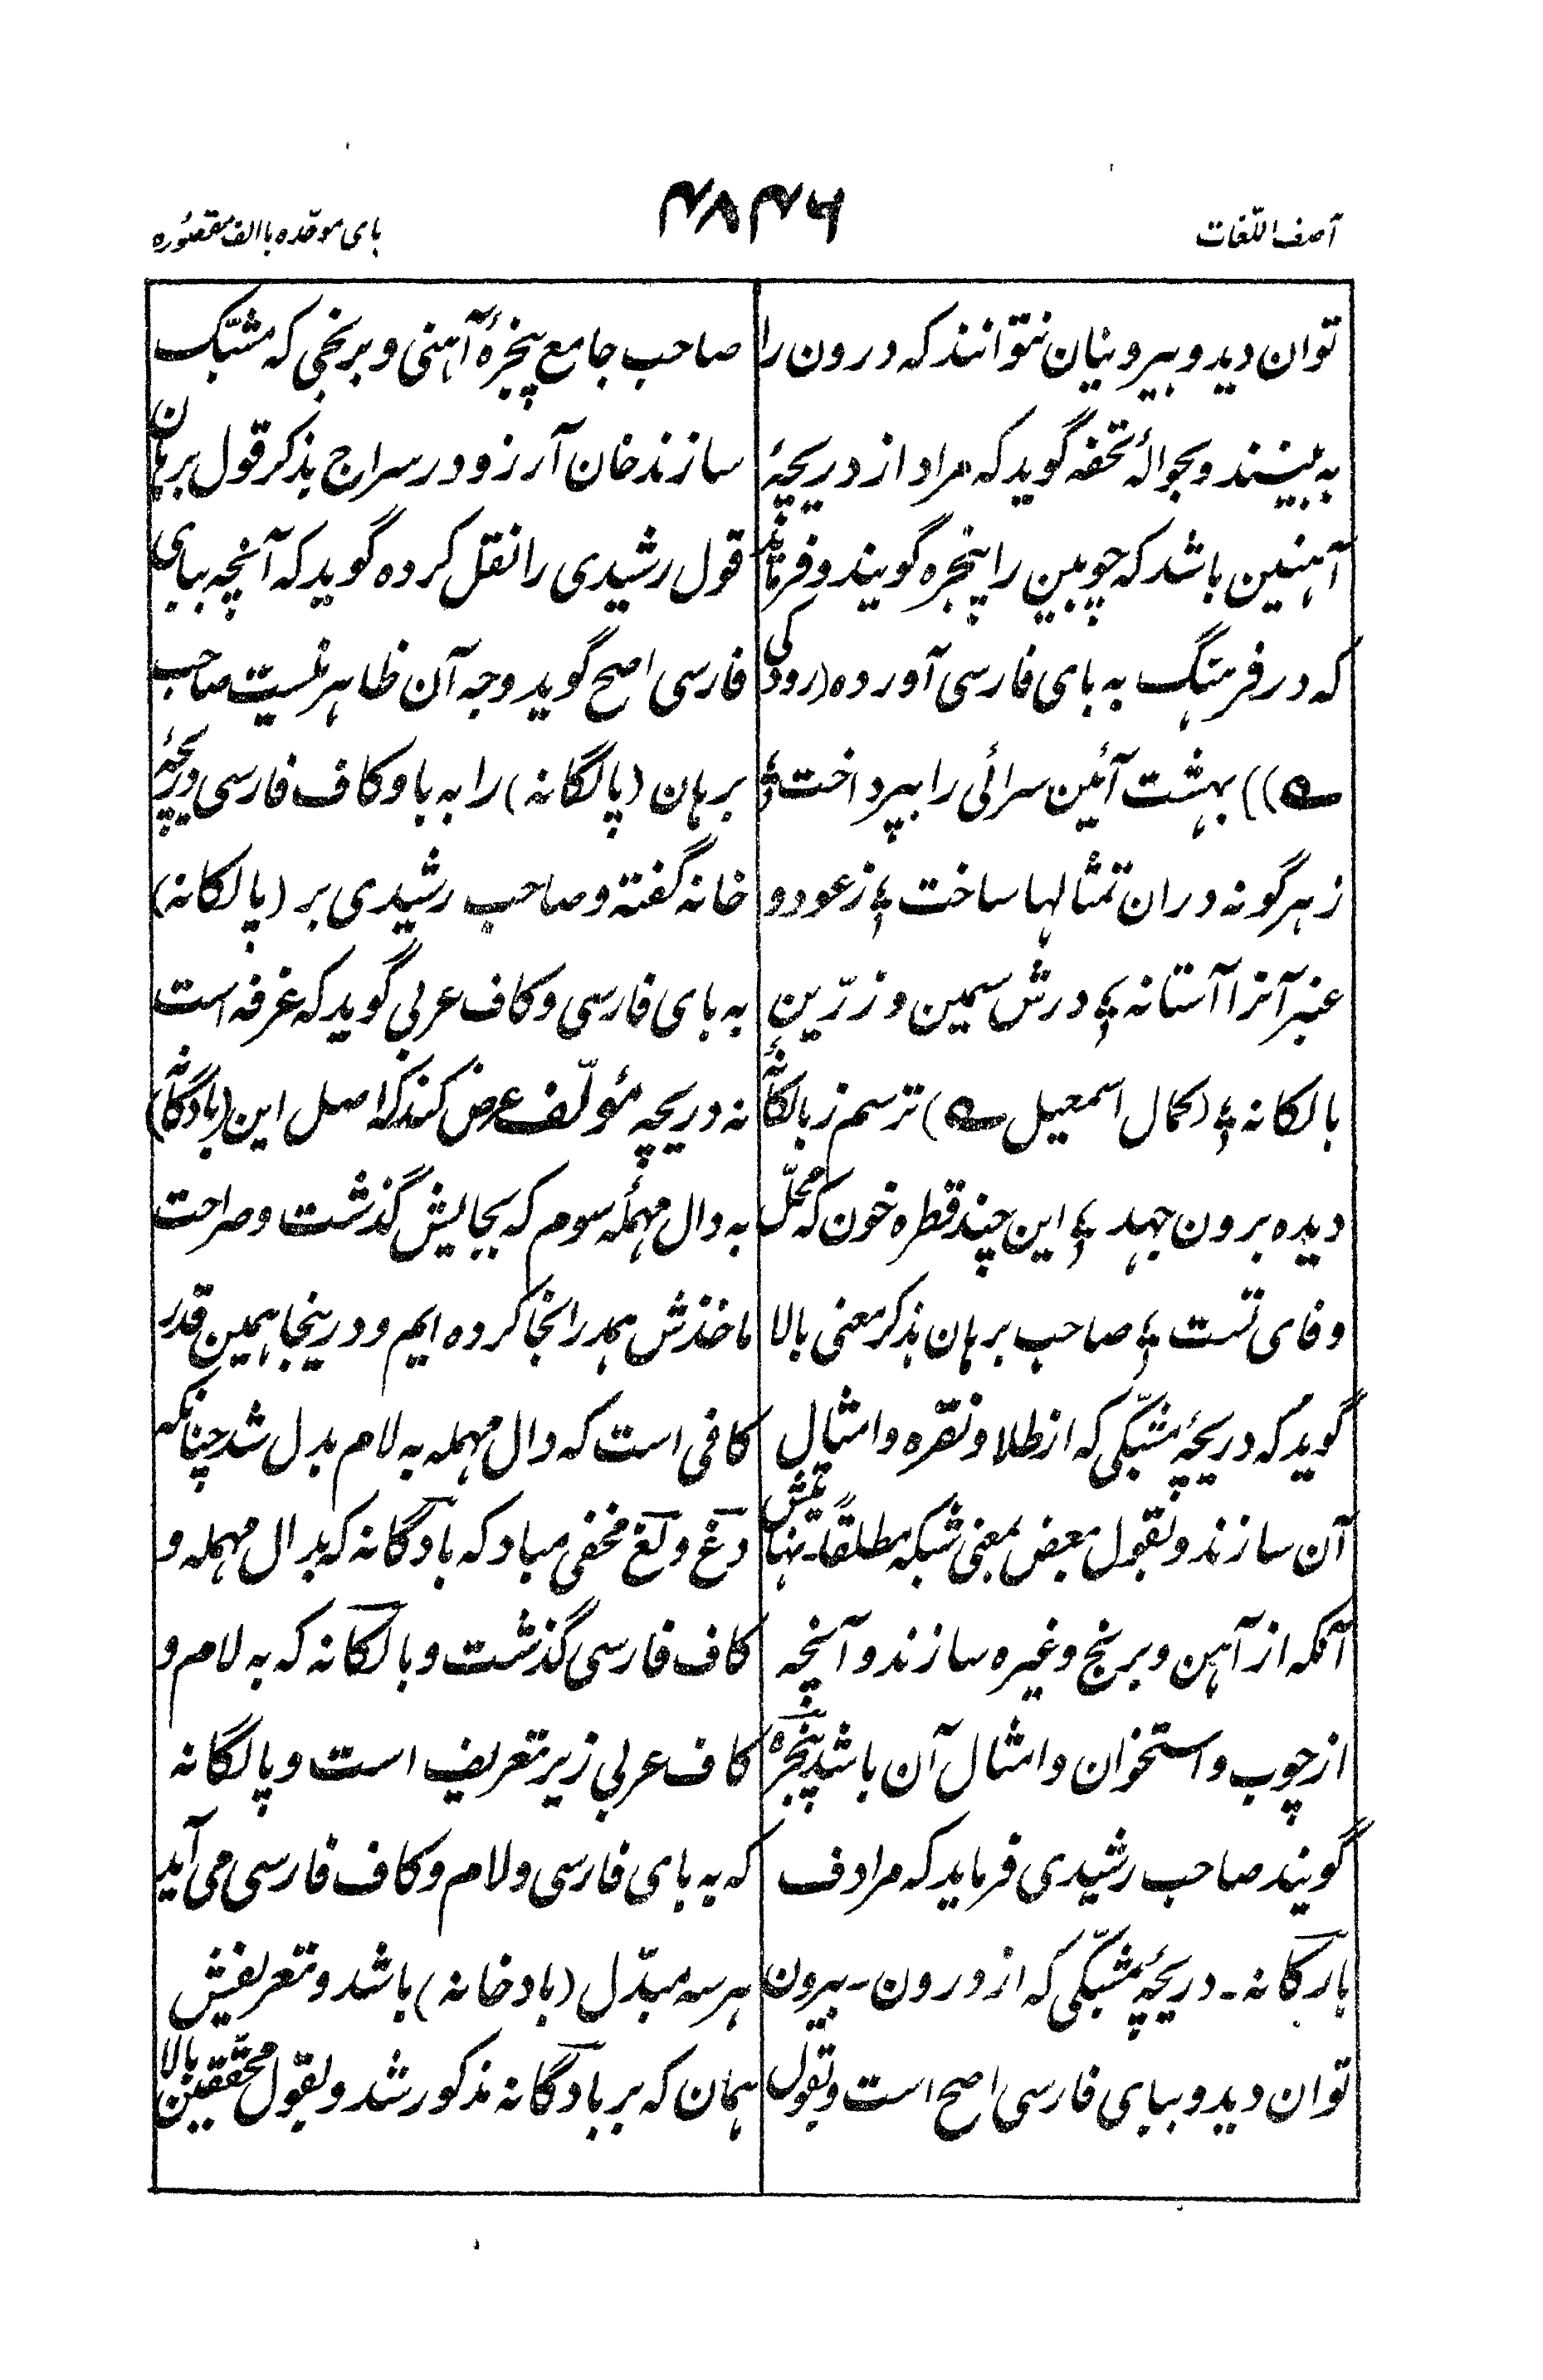 آصف اللّغات
۴۸۴۶
بای موحّده با الف مقصُوره
توان دید و بیرونیان نتوانند که درون را
به بینند و بحوالۂ تحفه گوید که مراد از دریچۂ
آهنین باشد که چوبین را پنجره گویند و فرماید
که در فرهنگ به بای فارسی آورده (رودکی
ے)) بهشت آئین سرائی را بپرداخت ؛
ز هرگونه دران تمثالها ساخت ؛ ز عود و
عنبر آنرا آستانه ؛ درش سیمین و زرّین
بالکانه ؛ (کمال اسمعیل ے) ترسم ز بالکانۂ
دیده برون جهد ؛ این چند قطره خون که محلّ
وفای تست ؛ صاحب برهان بذکر معنی بالا
گوید که دریچۂ مشبّکی که از طلا و نقره و امثال
آن سازند و بقول بعض بمعنی شبکه مطلقاً-
آنکه از آهن و برنج و غیره سازند و آنچه
از چوب و استخوان و امثال آن باشد پنجره
گویند صاحب رشیدی فرماید که مرادف
بارکانه - دریچۂ مشبّکی که از درون - بیرون
توان دید و ببای فارسی اصح است و بقول
صاحب جامع پنجرۂ آهنی و برنجی که مشبّک
سازند خان آرزو در سراج بذکر قول برهان
قول رشیدی را نقل کرده گوید که آنچه ببای
فارسی اصح گوید وجه آن ظاهر نیست صاحب
برهان (پالگانه) را به با و کاف فارسی دریچۂ
خانه گفته و صاحب رشیدی بر (پالکانه)
به بای فارسی و کاف عربی گوید که غرفه است
نه دریچه مؤلّف عرض کند که اصل این (بادگانه)
به دال مهملۂ سوم که بجایش گذشت و صراحت
ماخذش همدرانجا کرده ایم و درینجا همین قدر
کافی است که دال مهمله به لام بدل شد چنانکه
دغ و لغ مخفی مباد که بادگانه که بدال مهمله و
کاف فارسی گذشت و بالکانه که به لام و
کاف عربی زیر تعریف است و پالگانه
که به بای فارسی و لام و کاف فارسی می آید
هر سه مبدّل (بادخانه) باشد و تعریفش
همان که بر بادگانه مذکور شد و بقول محقّقین بالا